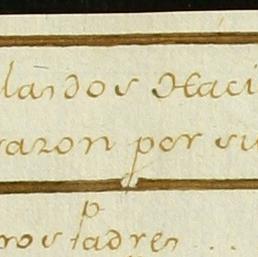 landos Haci
razon por su
p
ros padres ...